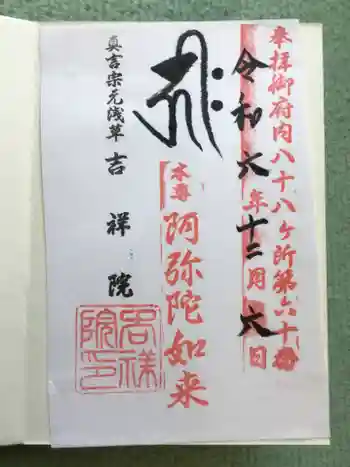 奉拝御府内八十八ケ所第六十番
令和六年十二月六日
本尊
阿弥陀如来
真言宗元浅草
吉祥院
吉祥院印